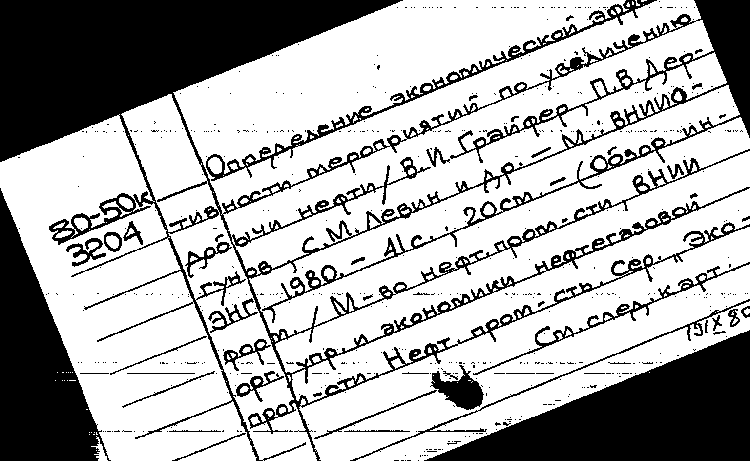 80-50к
3204
Определение экономической эффе
тивности мероприятий по увеличению
добычи нефти / В.И. Грайфер, П.В. Дер-
гунов, С.М. Левин и др. — М.: ВНИИО-
ЭНГ, 1980. - 41с.; 20см. — (Обзор. ин-
форм. / М-во нефт. пром-сти, ВНИИ
орг., упр. и экономики нефтегазовой
пром-сти. Нефт. пром-сть. Сер. „Эко-
См. след. карт.